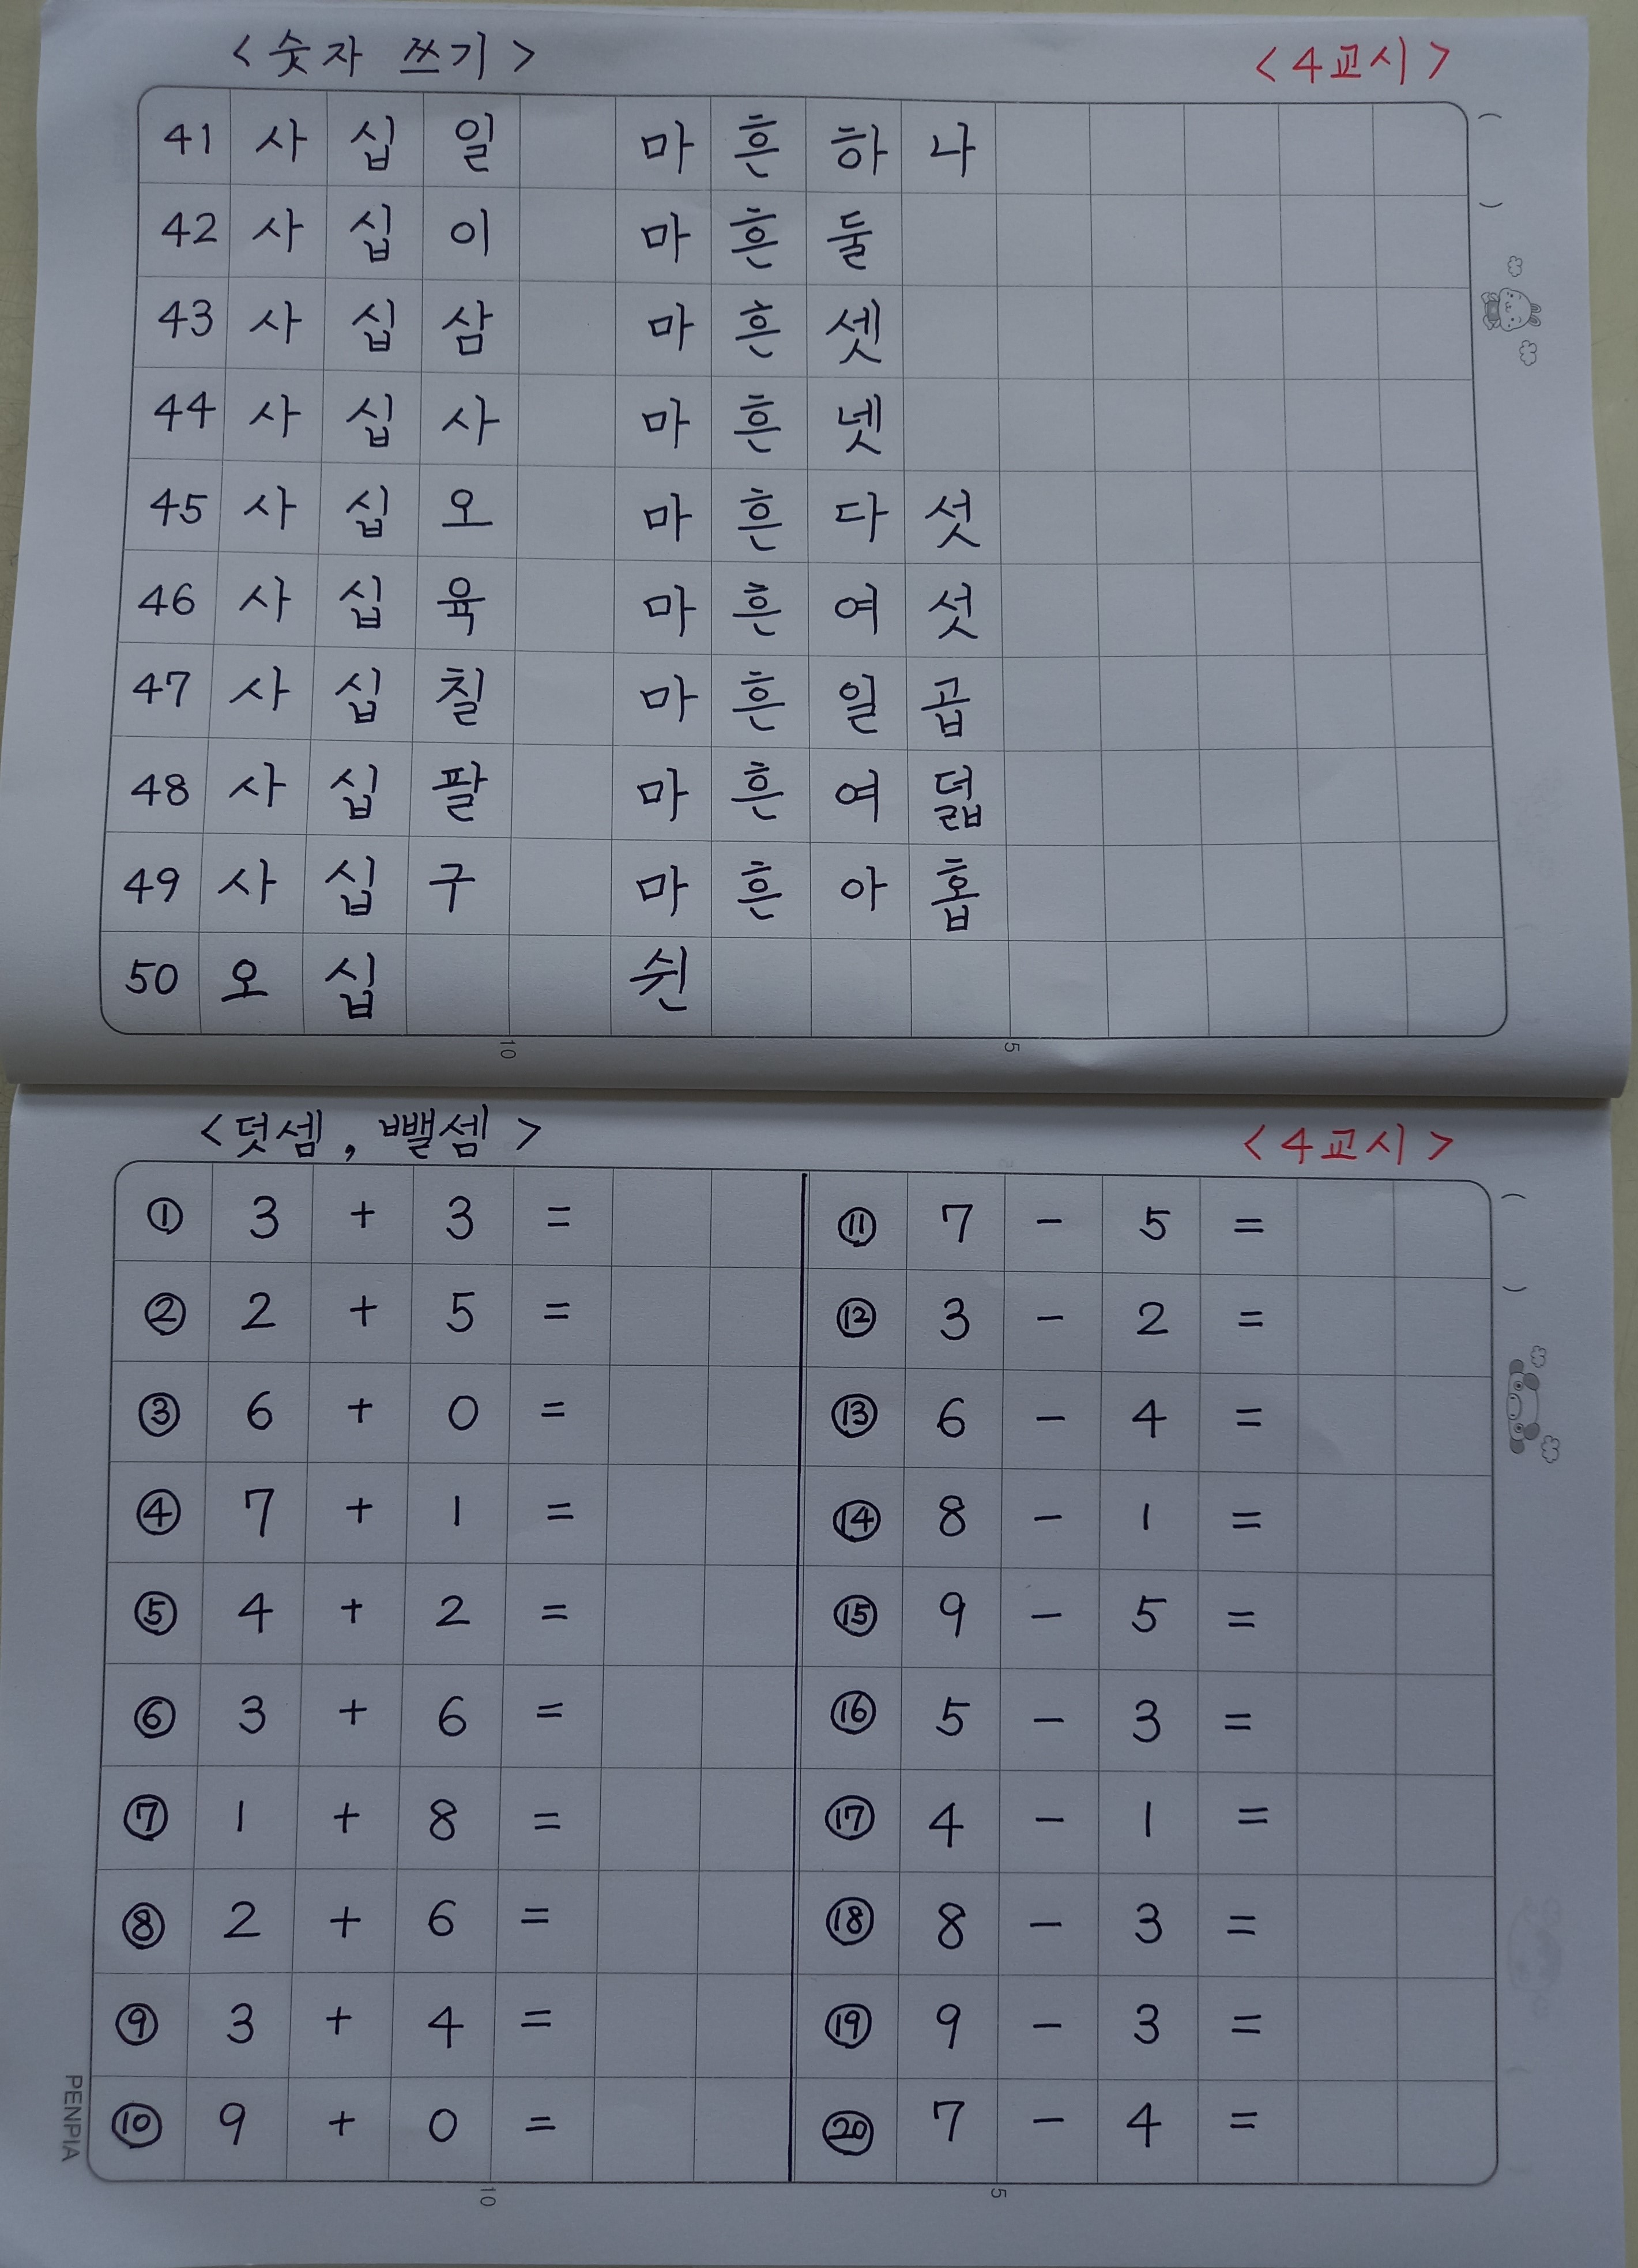 <숫자 쓰기> <4교시>
41 사십일 마흔하나
42 사십이 마흔둘
43 사십삼 마흔셋
44 사십사 마흔넷
45 사십오 마흔다섯
46 사십육 마흔여섯
47 사십칠 마흔일곱
48 사십팔 마흔여덟
49 사십구 마흔아홉
50 오십 쉰
10 5
<덧셈, 뺄셈> <4교시>
① 3 + 3 = ⑪ 7 - 5 =
② 2 + 5 = ⑫ 3 - 2 =
③ 6 + 0 = ⑬ 6 - 4 =
④ 7 + 1 = ⑭ 8 - 1 =
⑤ 4 + 2 = ⑮ 9 - 5 =
⑥ 3 + 6 = ⑯ 5 - 3 =
⑦ 1 + 8 = ⑰ 4 - 1 =
⑧ 2 + 6 = ⑱ 8 - 3 =
⑨ 3 + 4 = ⑲ 9 - 3 =
⑩ 9 + 0 = ⑳ 7 - 4 =
10 5
PENPIA